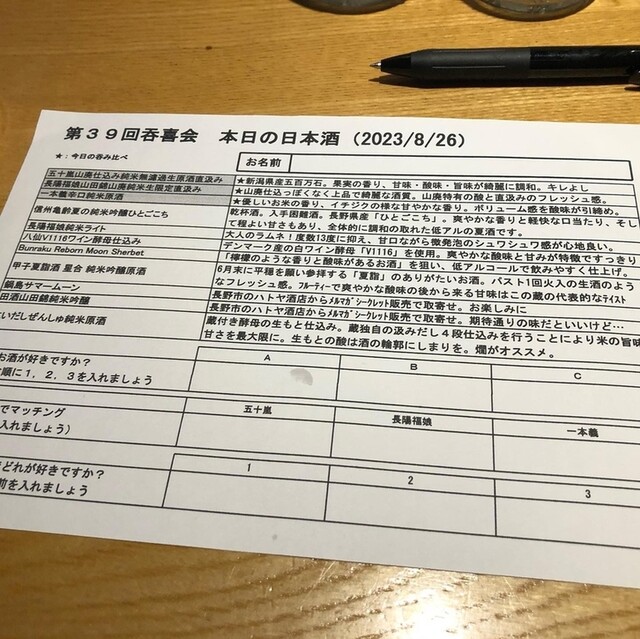 第39回呑喜会 本日の日本酒（2023/8/26）
★：今日の呑み比べ
お名前
五十嵐山廃仕込み純米無濾過生原酒直汲み
★新潟県産五百万石。果実の香り、甘味・酸味・旨味が綺麗に調和。キレよし
長陽福娘山田錦山廃純米生限定直汲み
★山廃仕込っぽくなく上品で綺麗な酒質。山廃特有の酸と直汲みのフレッシュ感。
一本義辛口純米原酒
★優しいお米の香り、イチジクの様な甘やかな香り。ボリューム感を酸味が引締め。
信州亀齢夏の純米吟醸ひとごこち
乾杯酒。入手困難酒。長野県産「ひとごこち」。爽やかな香りと軽快な口当たり、そし
て程よい甘さもあり、全体的に調和の取れた低アルの夏酒です。
長陽福娘純米ライト
大人のラムネ！度数13度に抑え、甘口ながら微発泡のシュワシュワ感が心地良い。
八仙V1116ワイン酵母仕込み
デンマーク産の白ワイン酵母「V1116」を使用。爽やかな酸味と甘みが特徴ですっきり
Bunraku Reborn Moon Sherbet
「檸檬のような香りと酸味があるお酒」を狙い、低アルコールで飲みやすく仕上げ。
甲子夏詣酒 星合 純米吟醸原酒
6月末に平穏を願い参拝する「夏詣」のありがたいお酒。パスト1回火入の生酒のよう
なフレッシュ感。フルーティーで爽やかな酸味の後から来る甘味はこの蔵の代表的なテイスト
鍋島サマームーン
長野市のハトヤ酒店からメルマガシークレット販売で取寄せ。お楽しみに
田酒山田錦純米吟醸
長野市のハトヤ酒店からメルマガシークレット販売で取寄せ。期待通りの味だといいけど…
にいだしぜんしゅ純米原酒
蔵付き酵母の生もと仕込み。蔵独自の汲みだし4段仕込みを行うことにより米の旨味
甘さを最大限に。生もとの酸は酒の輪郭にしまりを。燗がオススメ。
お酒が好きですか？
順に1，2，3を入れましょう
A
B
C
でマッチング
入れましょう）
五十嵐
長陽福娘
一本義
どれが好きですか？
前を入れましょう
1
2
3